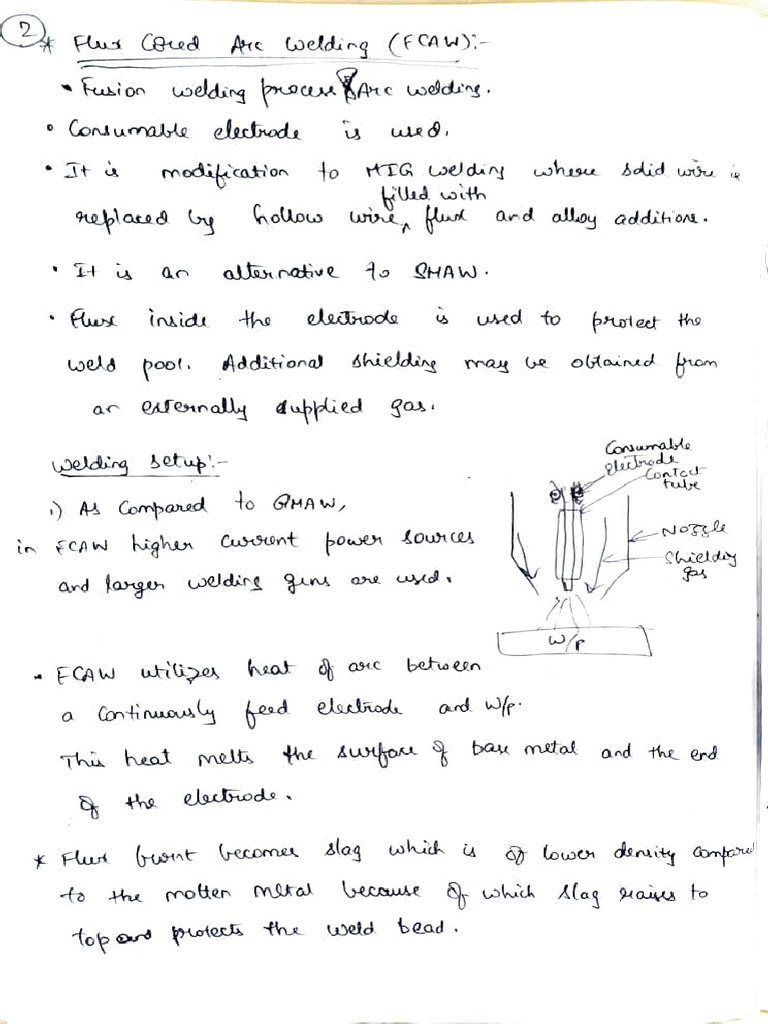 2
* Flux Cored Arc Welding (FCAW):-
• Fusion welding process & Arc welding.
• Consumable electrode is used.
• It is modification to MIG welding where solid wire is
filled with
replaced by hollow wire, flux and alloy additions.
• It is an alternative to SMAW.
• Flux inside the electrode is used to protect the
weld pool. Additional shielding may be obtained from
an externally supplied gas.
Welding setup:-
Consumable
electrode
Contact
tube
Nozzle
Shielding
gas
W/P
1) As Compared to GMAW,
in FCAW higher current power sources
and larger welding guns are used.
• FCAW utilizes heat of arc between
a continuously feed electrode and W/p.
This heat melts the surface of base metal and the end
of the electrode.
* Flux burnt becomes slag which is of lower density compared
to the molten metal because of which slag raises to
top and protects the weld bead.